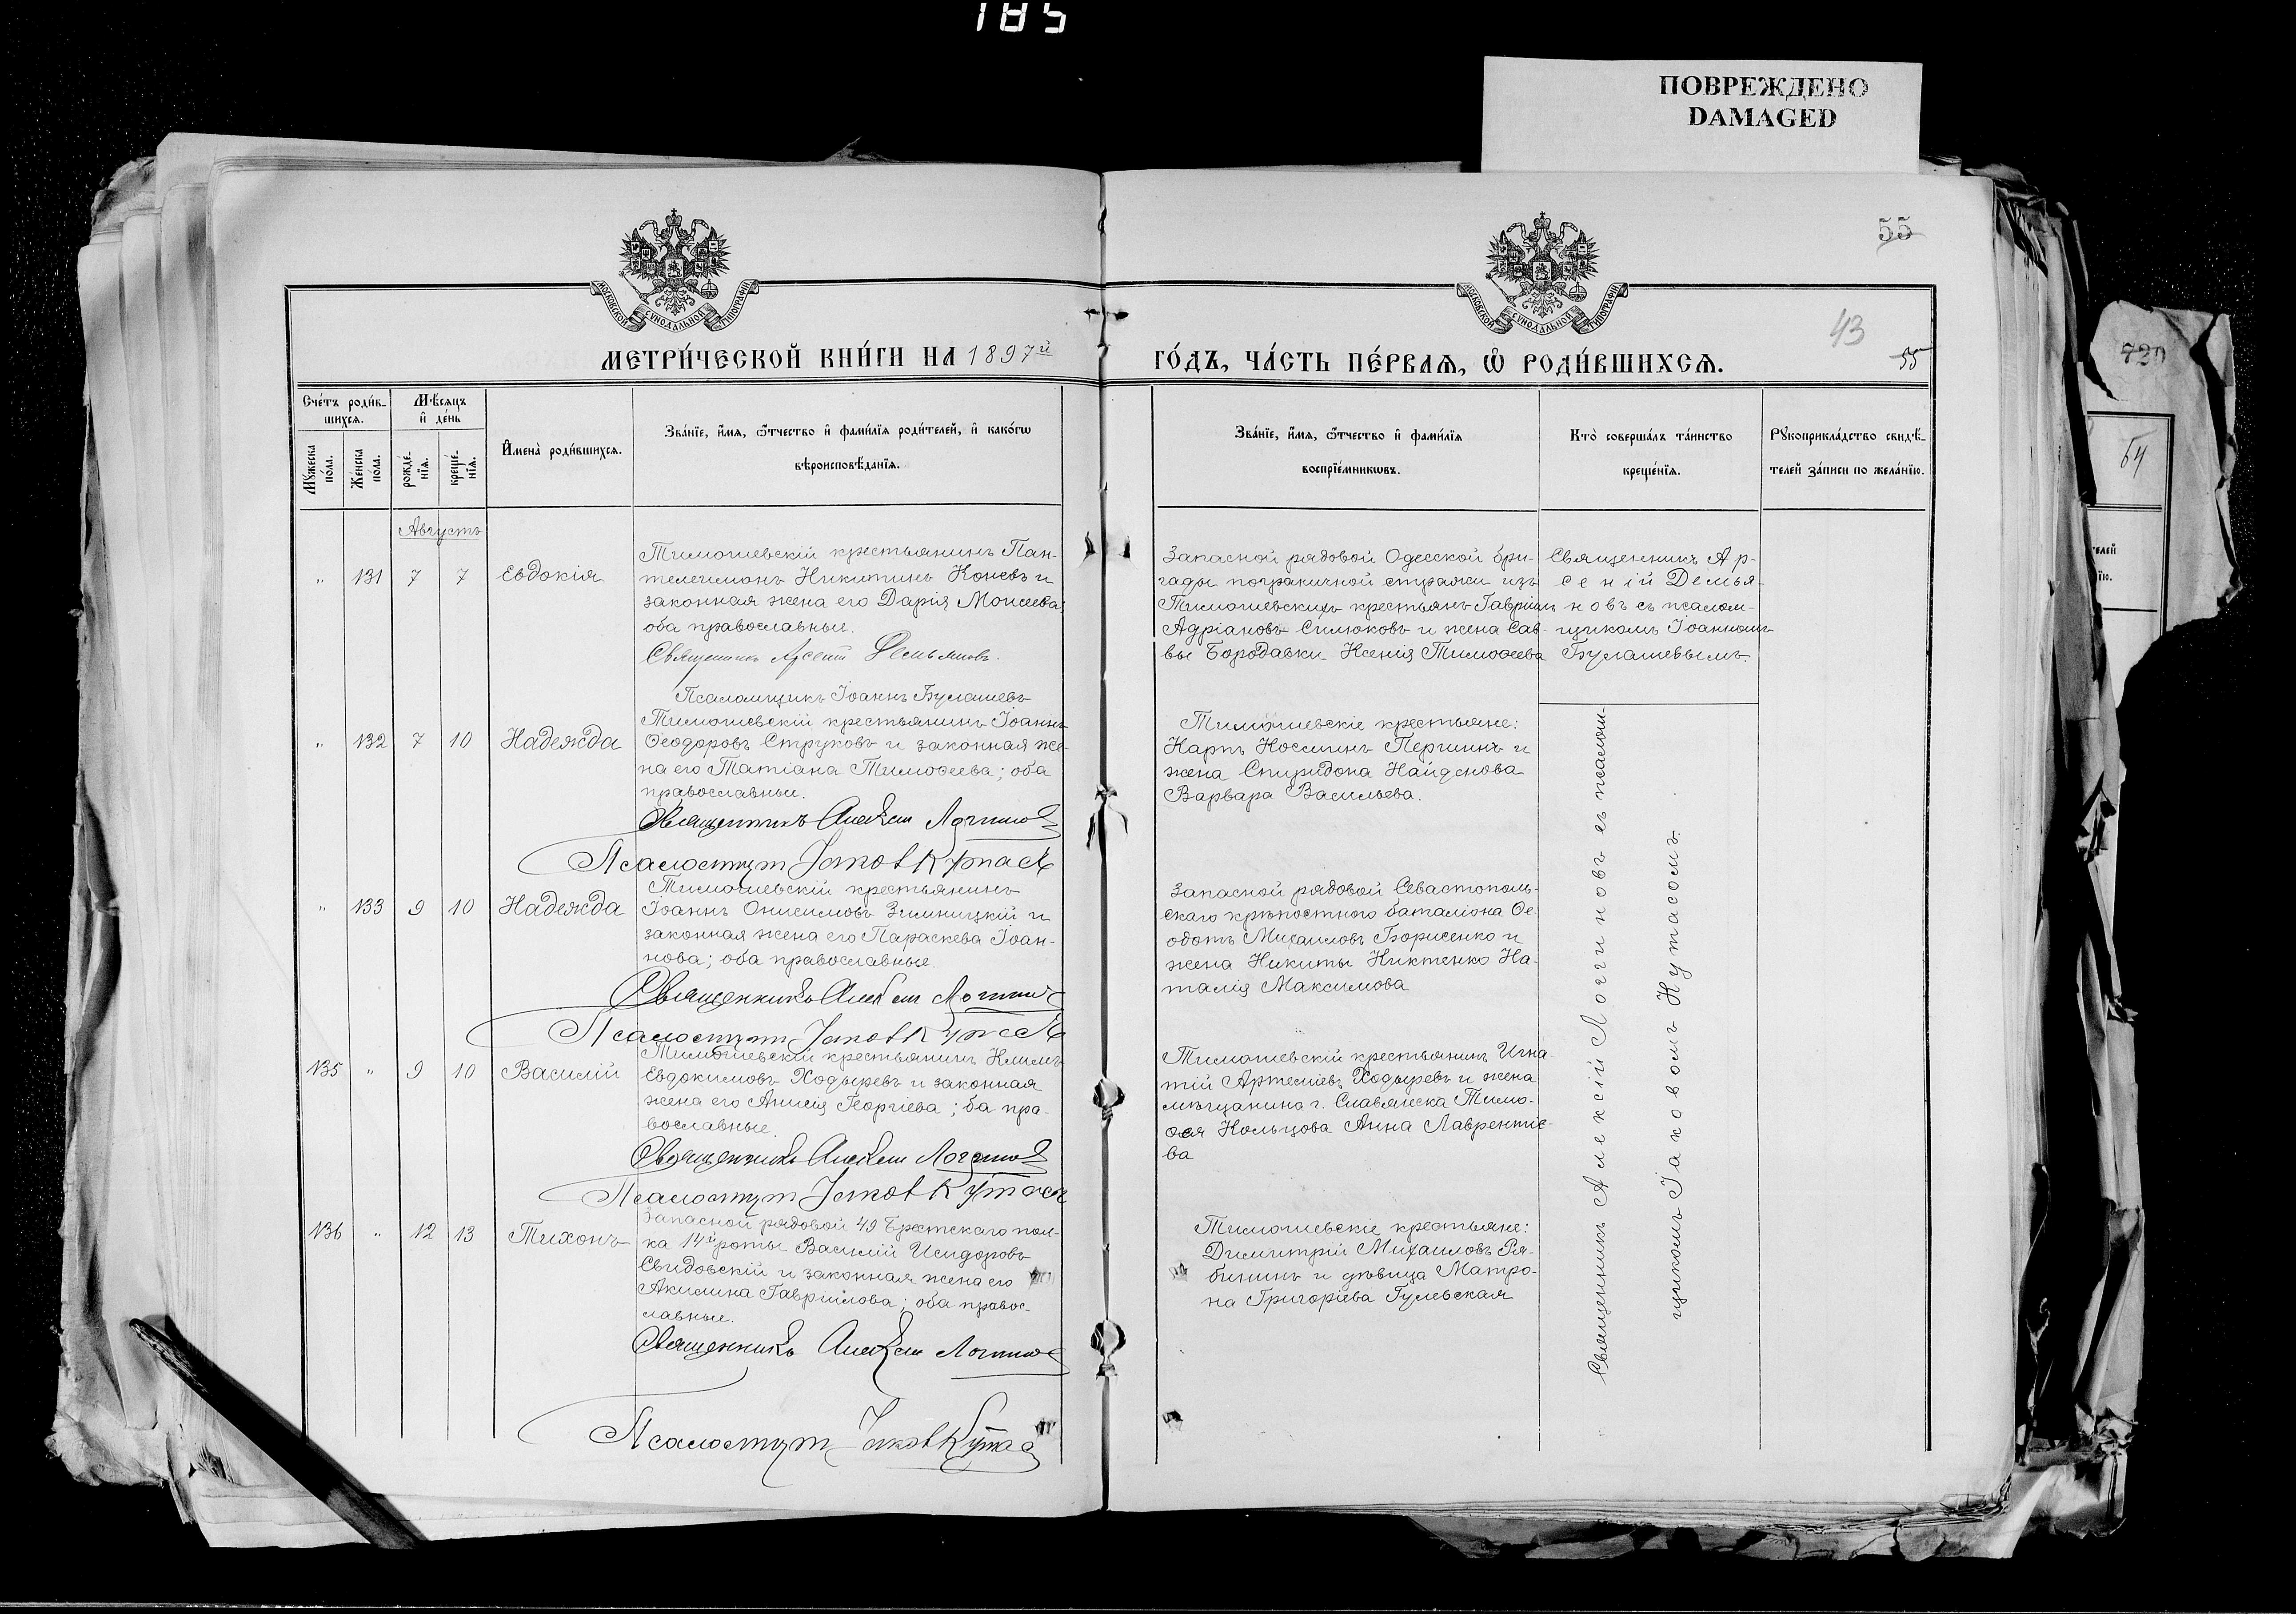 185
ПОВРЕЖДЕНО
DAMAGED
55
МОСКОВСКОЙ СѴНОДАЛЬНОЙ ТИПОГРАФІИ
МОСКОВСКОЙ СѴНОДАЛЬНОЙ ТИПОГРАФІИ
43
МЕТРИ́ЧЕСКОЙ КНИ́ГИ НА 1897й
ГО́ДЪ, ЧА́СТЬ ПЕ́РВАѦ, Ѡ҆ РОДИ́ВШИХСѦ.
55
Сче́тъ роди́в-
шихсѧ.
Мѣ́сяцъ
и҆ де́нь
Мꙋ́жеска
по́ла.
Же́нска
по́ла.
рожде́-
нїѧ.
креще́-
нїѧ.
И҆мена̀ роди́вшихсѧ.
Зва́нїе, и҆́мѧ, ѻ҆́тчество и҆ фами́лїѧ роди́телей, и҆ како́гѡ
вѣроисповѣ́данїѧ.
Зва́нїе, и҆́мѧ, ѻ҆́тчество и҆ фами́лїѧ
воспрїе́мникѡвъ.
Кто̀ соверша́лъ та́инство
креще́нїѧ.
Рꙋкоприкла́дство свидѣ́-
телей за́писи по жела́нїю.
Августъ
" 131 7 7 Евдокія
Тимошевскій крестьянинъ Пан-
телеимонъ Никитинъ Коневъ и
законная жена его Дарія Моисеева;
оба православные.
Священникъ Арсеній Демьяновъ.
Псаломщикъ Іоаннъ Булашевъ
Запасной рядовой Одесской бри-
гады пограничной стражи изъ
Тимошевскихъ крестьянъ Гавріилъ
Адріановъ Силюковъ и жена Сав-
вы Бородавки Ксенія Тимоѳеева
Священникъ Ар-
сеній Демья-
новъ съ псалом-
щикомъ Іоанномъ
Булашевымъ.
" 132 7 10 Надежда
Тимошевскій крестьянинъ Іоаннъ
Ѳеодоровъ Струковъ и законная же-
на его Татіана Тимоѳеева; оба
православные.
Священникъ Алексій Логгиновъ
Псаломщикъ Іаковъ Кутасъ
Тимошевскіе крестьяне:
Карпъ Косминъ Першинъ и
жена Спиридона Найденова
Варвара Васильева.
Священникъ Алексій Логгиновъ съ псалом-
щикомъ Іаковомъ Кутасомъ.
" 133 9 10 Надежда
Тимошевскій крестьянинъ
Іоаннъ Онисимовъ Зимницкій и
законная жена его Параскева Іоан-
нова; оба православные.
Священникъ Алексій Логгиновъ
Псаломщикъ Іаковъ Кутасъ
Запасной рядовой Севастополь-
скаго крѣпостного баталіона Ѳе-
одотъ Михаиловъ Борисенко и
жена Никиты Никтенко На-
талія Максимова
135 " 9 10 Василій
Тимошевскій крестьянинъ Климъ
Евдокимовъ Ходыревъ и законная
жена его Анисія Георгіева; ба пра-
вославные.
Священникъ Алексій Логгиновъ
Псаломщикъ Іаковъ Кутасъ
Тимошевскій крестьянинъ Игна-
тій Артеміевъ Ходыревъ и жена
мѣщанина г. Славянска Тимо-
ѳея Кольцова Анна Лаврентіе-
ва
136 " 12 13 Тихонъ
Запасной рядовой 49 Брестскаго пол-
ка 14й роты Василій Исидоровъ
Свидовскій и законная жена его
Акилина Гавріилова; оба правос-
лавные.
Священникъ Алексій Логгиновъ
Псаломщикъ Іаковъ Кутасъ
Тимошевскіе крестьяне:
Димитрій Михаиловъ Ря-
бининъ и дѣвица Матро-
на Григоріева Гулевская
54